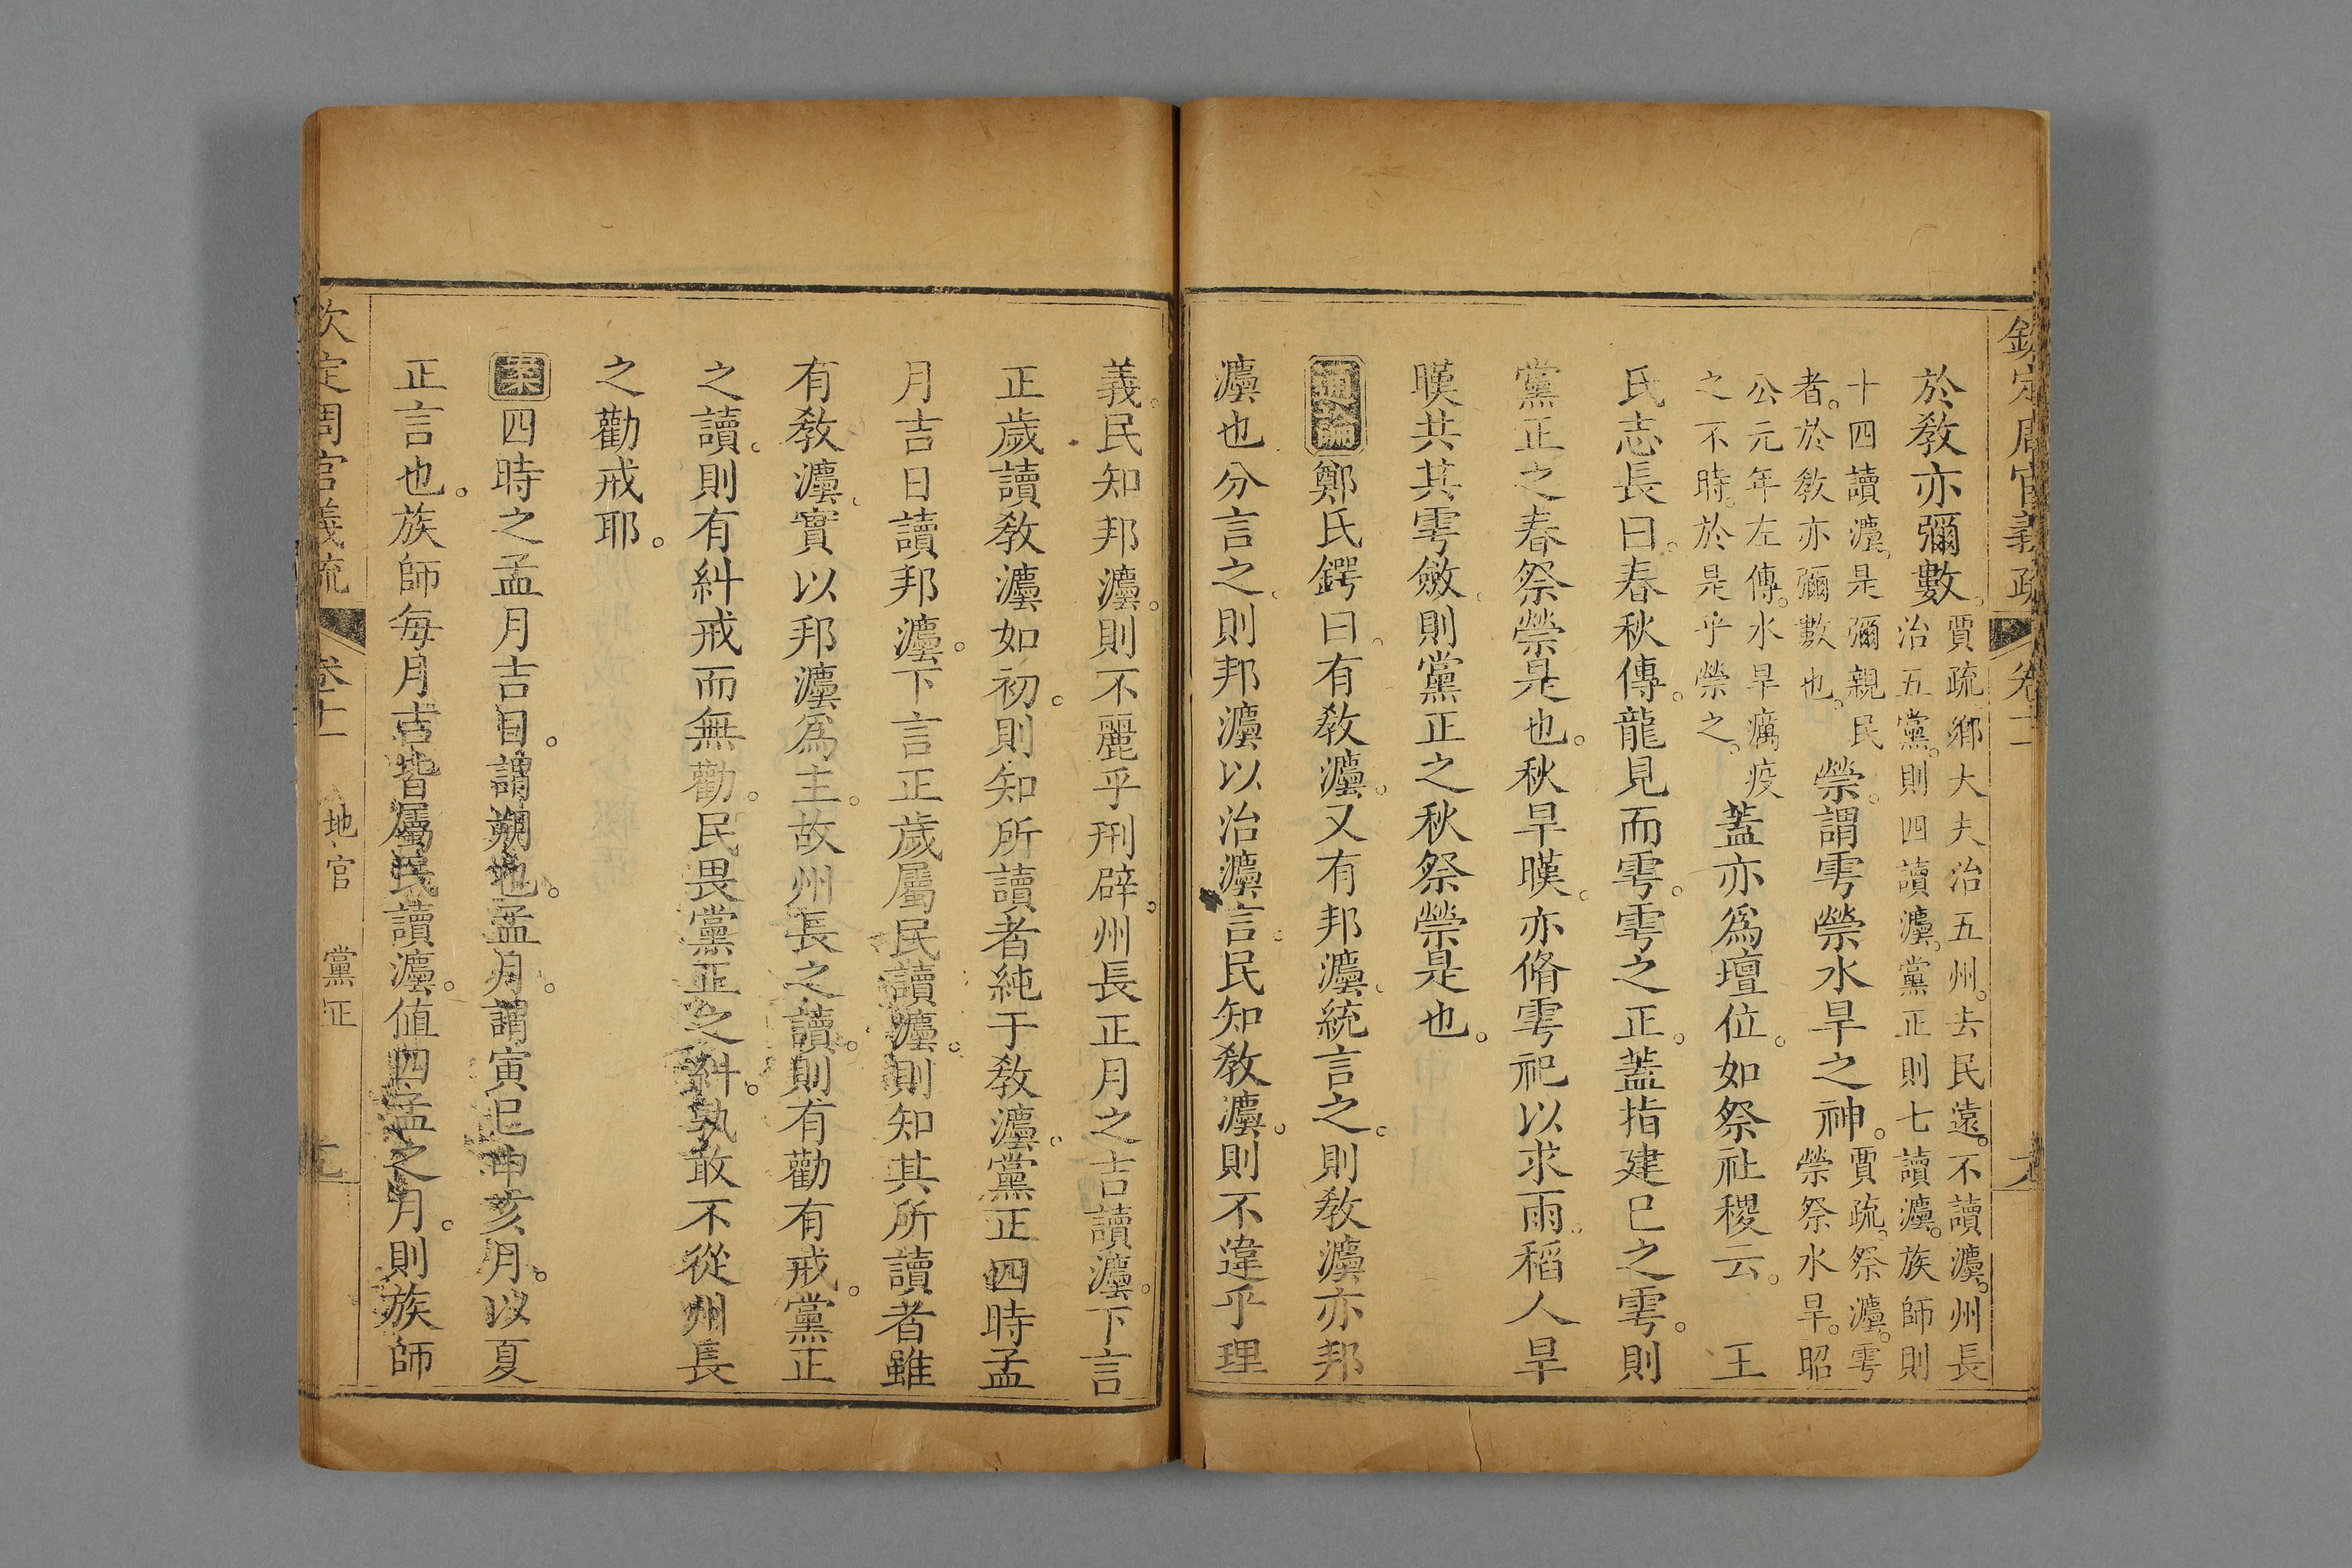 欽定周官義疏 卷十一
於敎亦彌數。賈疏鄉大夫治五州。去民遠。不讀灋。州長
治五黨。則四讀灋。黨正則七讀灋。族師則
十四讀灋。是彌親民
者。於敎亦彌數也。禜。謂雩禜水旱之神。賈疏。祭灋。雩
禜祭水旱。昭
公元年左傳。水旱癘疫
之不時。於是乎禜之。蓋亦爲壇位。如祭社稷云。 王
氏志長曰。春秋傳。龍見而雩。雩之正。蓋指建巳之雩。則
黨正之春祭禜是也。秋旱暵。亦脩雩祀以求雨。稻人旱
暵共其雩斂。則黨正之秋祭禜是也。
通論鄭氏鍔曰。有敎灋。又有邦灋。統言之。則敎灋亦邦
灋也分言之。則邦灋以治灋言。民知敎灋。則不違乎理
義。民知邦灋。則不麗乎刑辟。州長正月之吉讀灋。下言
正歲讀敎灋如初。則知所讀者純于敎灋。黨正四時孟
月吉日讀邦灋。下言正歲屬民讀灋。則知其所讀者雖
有敎灋。實以邦灋爲主。故州長之讀。則有勸有戒。黨正
之讀。則有糾戒而無勸。民畏黨正之糾。孰敢不從州長
之勸戒耶。
案四時之孟月吉日。謂朔也。孟月。謂寅巳申亥月。以夏
正言也。族師每月吉皆屬民讀灋。値四孟之月。則族師
欽定周官義疏 卷十一 地官 黨正